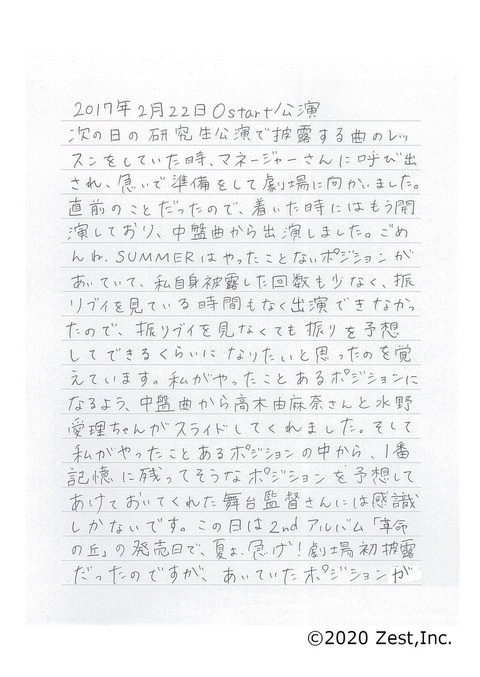 2017年2月22日0start公演
次の日の研究生公演で披露する曲のレッ
スンをしていた時、マネージャーさんに呼び出
され、急いで準備をして劇場に向かいました。
直前のことだったので、着いた時にはもう開
演しており、中盤曲から出演しました。ごめ
んね、SUMMERはやったことないポジションが
あいていて、私自身披露した回数も少なく、振
りブイを見ている時間もなく出演できなかっ
たので、振りブイを見なくても振りを予想
してできるくらいになりたいと思ったのを覚
えています。私がやったことあるポジションに
なるよう、中盤曲から高木由麻奈さんと水野
愛理ちゃんがスライドしてくれました。そして
私がやったことあるポジションの中から、1番
記憶に残ってそうなポジションを予想して
あけておいてくれた舞台監督さんには感識
しかないです。この日は2ndアルバム「革命
の丘」の発売日で、夏よ、急げ!劇場初披露
だったのですが、あいていたポジションが
©2020 Zest,Inc.